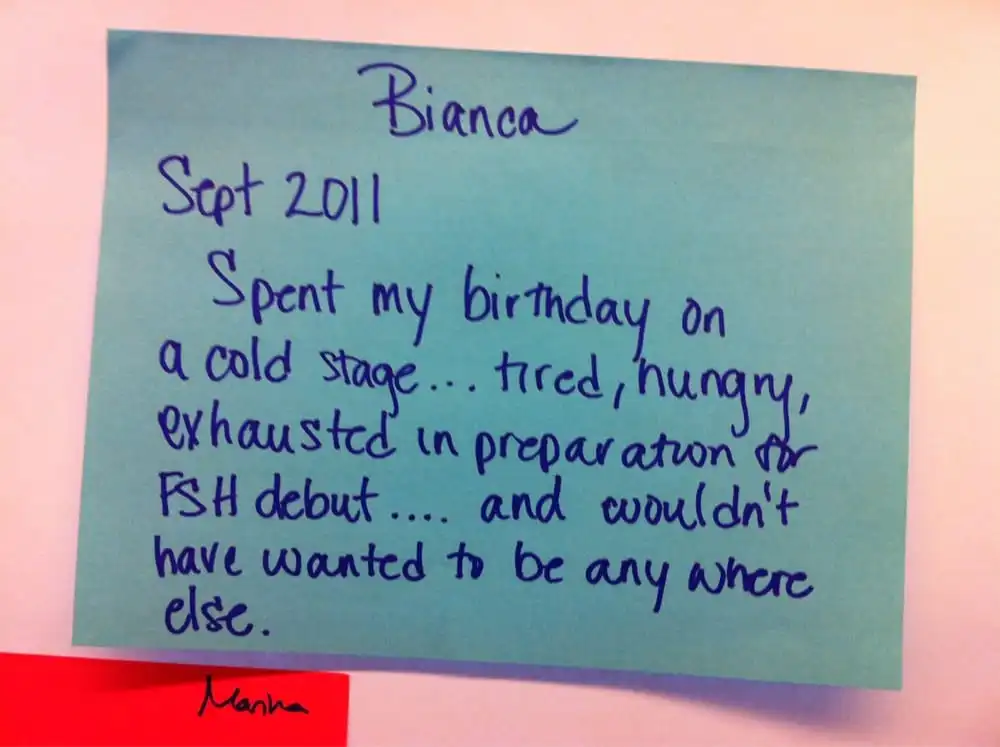 Bianca
Sept 2011
Spent my birthday on
a cold stage... tired, hungry,
exhausted in preparation for
FSH debut.... and wouldn't
have wanted to be any where
else.
Marina